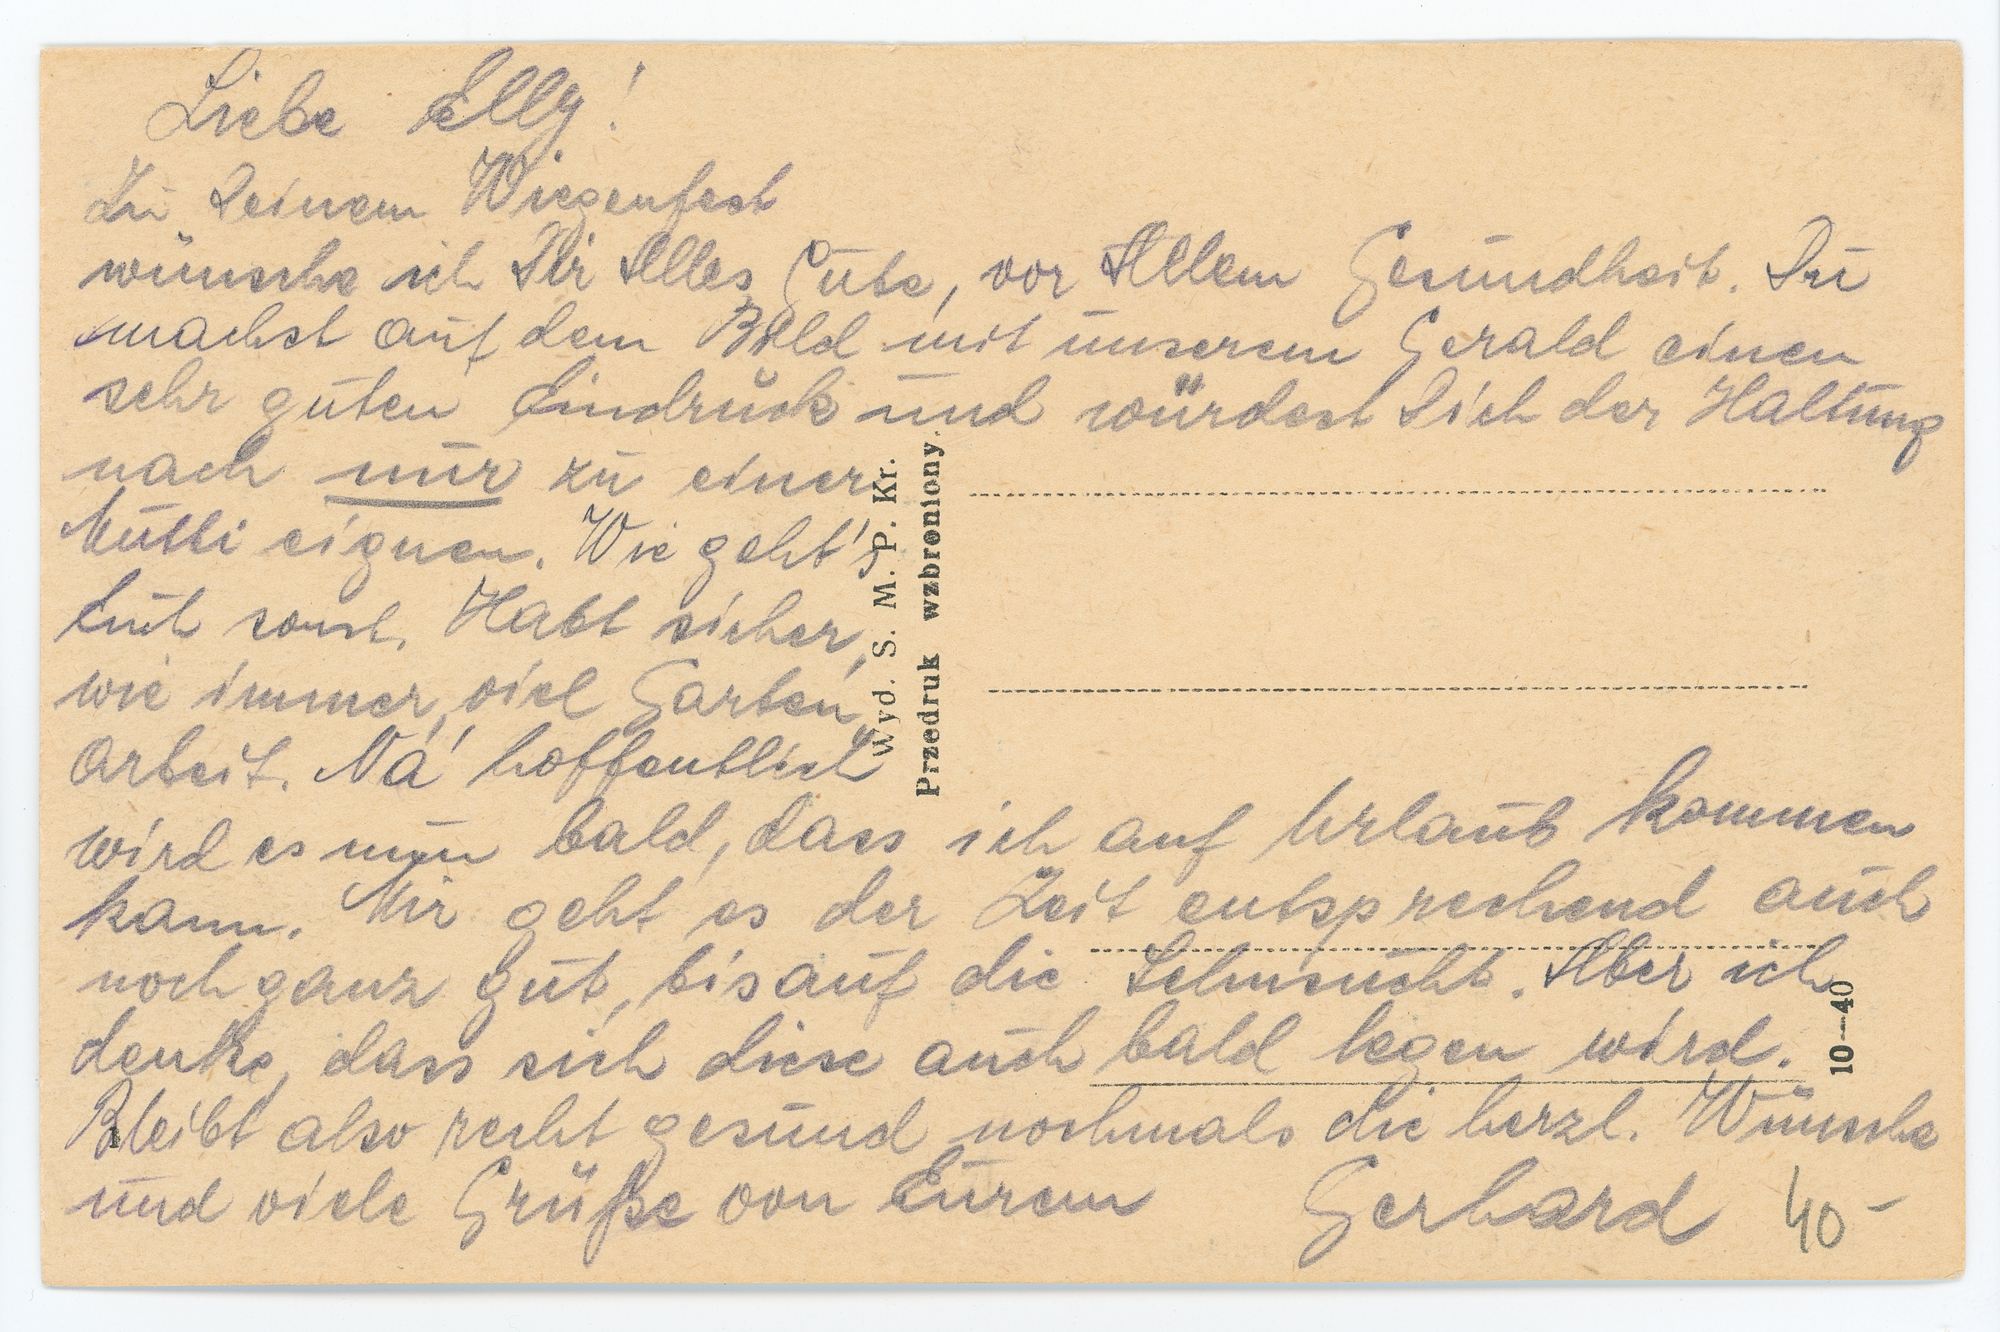 Liebe Elly!
Zu Deinem Wiegenfest
wünsche ich Dir Alles Gute, vor Allem Gesundheit. Du
machst auf dem Bild mit unserem Gerald einen
sehr guten Eindruck und würdest Dich der Haltung
nach nur zu einer
Mutti eignen. Wie geht's
Euch sonst. Habt sicher,
wie immer, viel Garten
Arbeit. Na' hoffentlich
wird es nun bald, dass ich auf Urlaub kommen
kann. Mir geht es der Zeit entsprechend auch
noch ganz gut, bis auf die Sehnsucht. Aber ich
denke, dass sich diese auch bald legen wird.
Bleibt also recht gesund nochmals die herzl. Wünsche
und viele Grüße von Eurem Gerhard
40-
Wyd. S. M. P. Kr.
Przedruk wzbroniony.
10—40